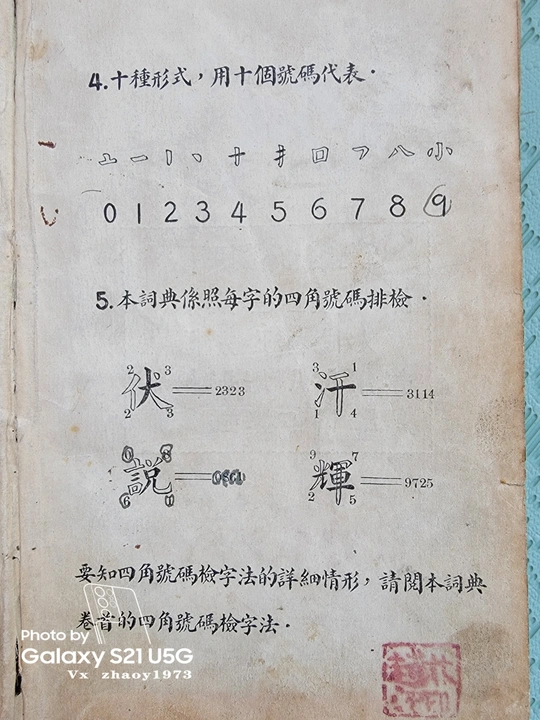 4.十種形式，用十個號碼代表．
0 1 2 3 4 5 6 7 8 9
5.本詞典係照每字的四角號碼排檢．
2 3
伏═2323
2 3
3 1
汗═3114
1 4
0 8
說═
6 1
9 7
輝═9725
2 5
要知四角號碼檢字法的詳細情形，請閱本詞典
卷首的四角號碼檢字法．
Photo by
Galaxy S21 U5G
Vx zhaoy1973